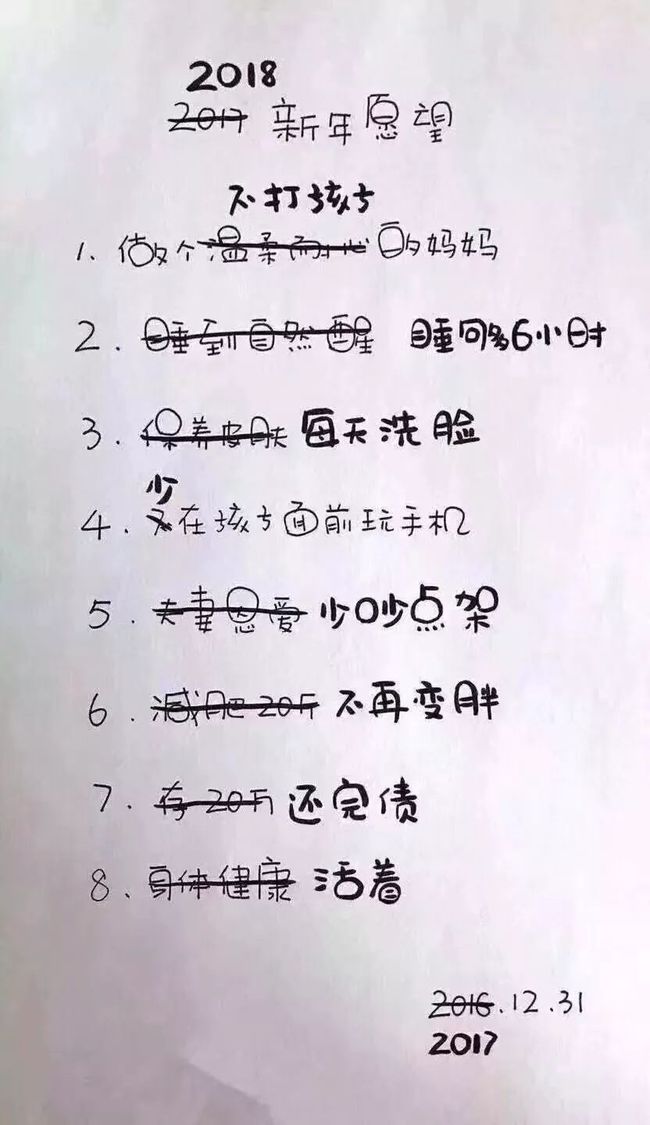 2018
2017 新年愿望
不打孩子
1. 做个温柔耐心的妈妈
2. 睡到自然醒 睡够6小时
3. 保养皮肤 每天洗脸
少
4. 不在孩子面前玩手机
5. 夫妻恩爱 少吵点架
6. 减肥20斤 不再变胖
7. 存20万 还完债
8. 身体健康 活着
2016.12.31
2017